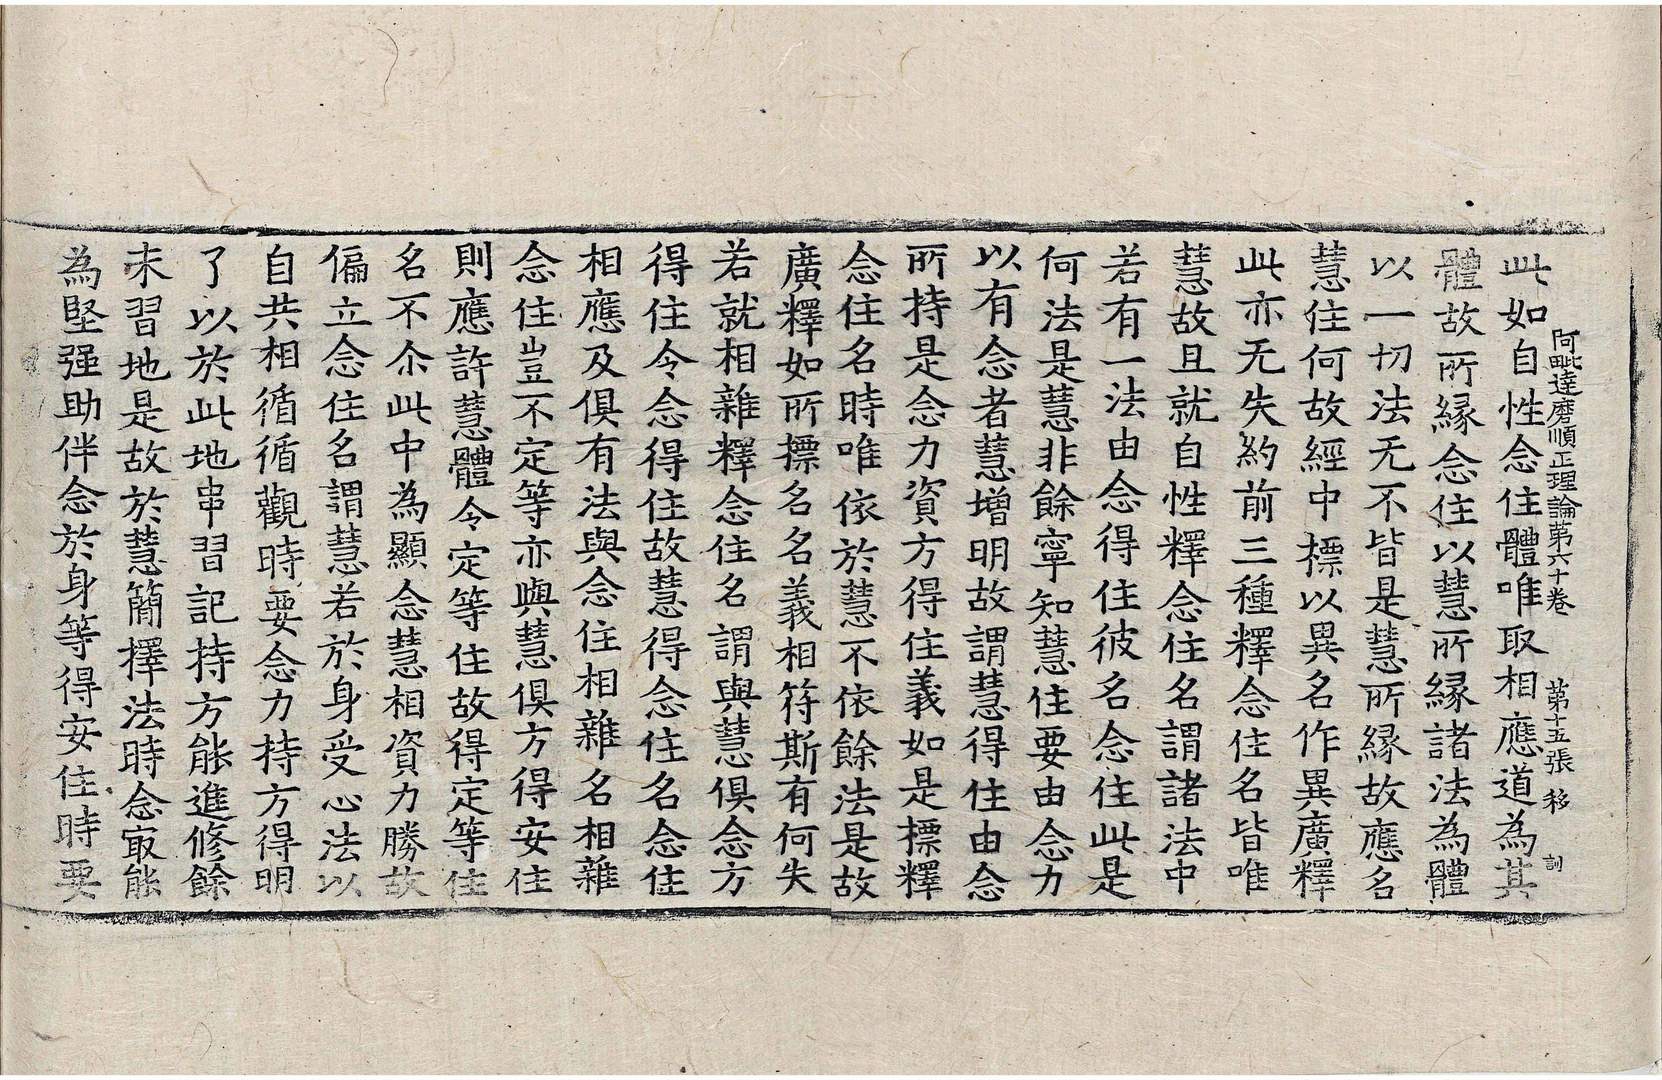 阿毗達磨順正理論第六十卷 第十五張 移 訓
此如自性念住體唯取相應道為其
體故所緣念住以慧所緣諸法為體
以一切法无不皆是慧所緣故應名
慧住何故經中標以異名作異廣釋
此亦无失約前三種釋念住名皆唯
慧故且就自性釋念住名謂諸法中
若有一法由念得住彼名念住此是
何法是慧非餘寧知慧住要由念力
以有念者慧增明故謂慧得住由念
所持是念力資方得住義如是標釋
念住名時唯依於慧不依餘法是故
廣釋如所標名名義相符斯有何失
若就相雜釋念住名謂與慧俱念方
得住令念得住故慧得念住名念住
相應及俱有法與念住相雜名相雜
念住豈不定等亦與慧俱方得安住
則應許慧體令定等住故得定等住
名不尒此中為顯念慧相資力勝故
偏立念住名謂慧若於身受心法以
自共相循循觀時要念力持方得明
了以於此地串習記持方能進修餘
未習地是故於慧簡擇法時念㝡能
為堅强助伴念於身等得安住時要